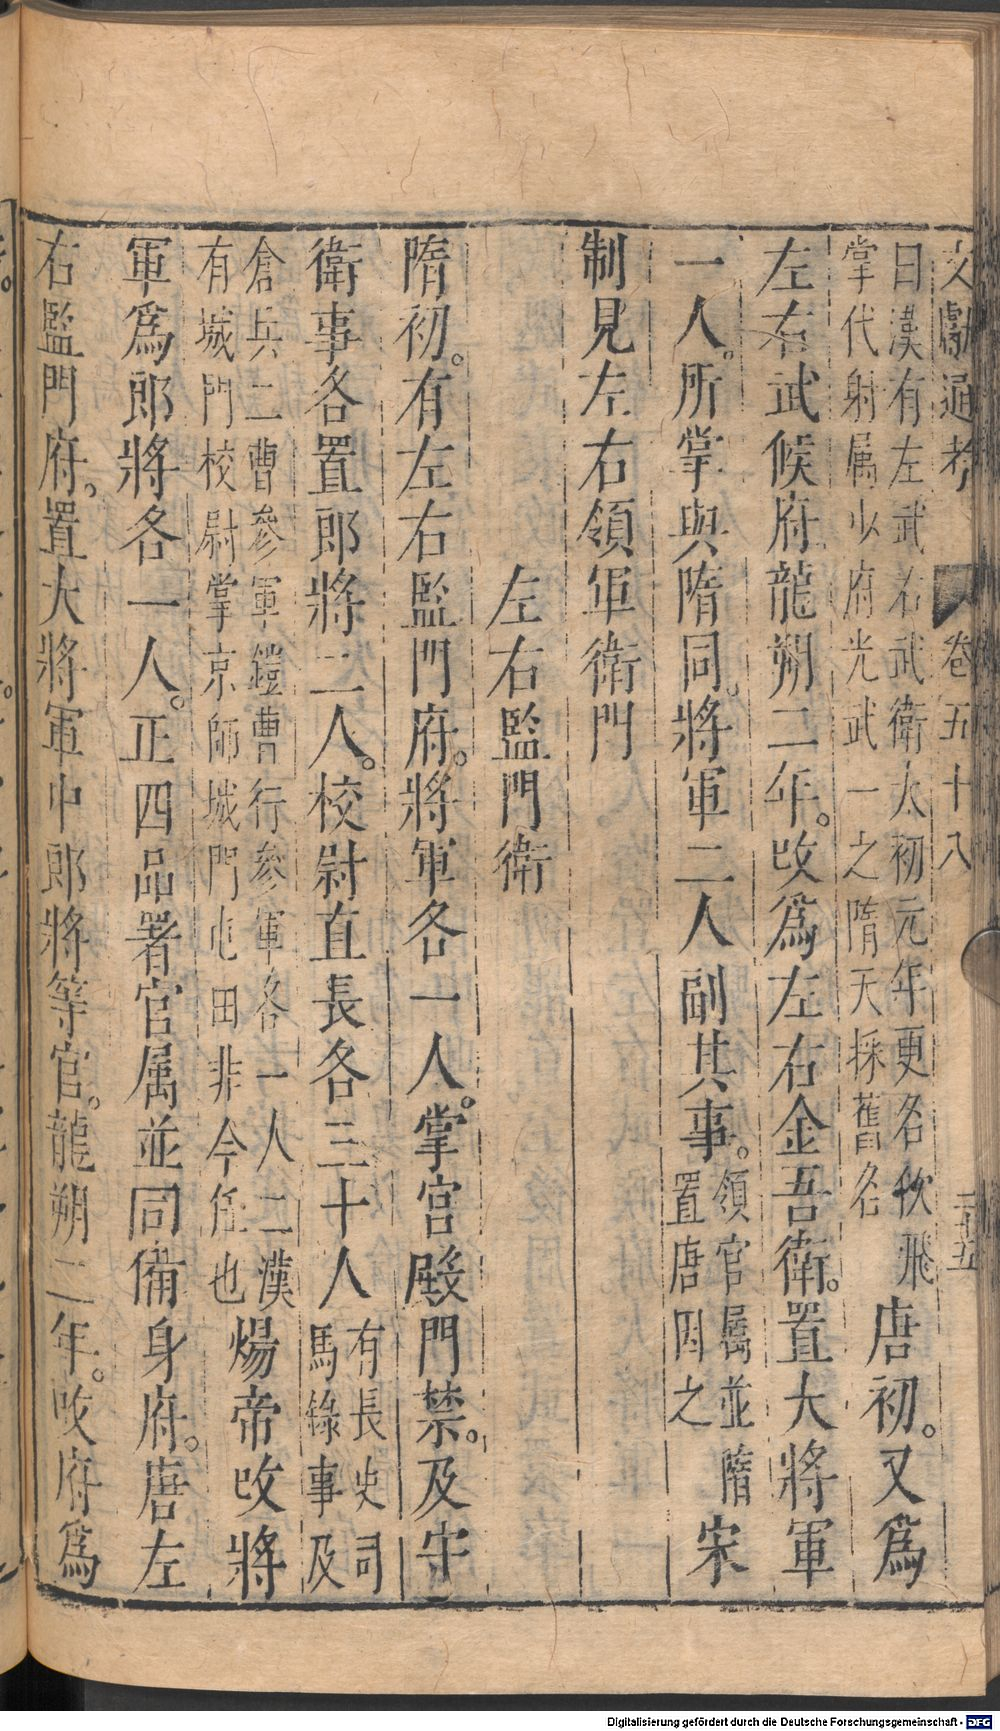 文獻通考 卷五十八 二十五
曰漢有左武右武衛太初元年更名佽飛
掌代射属少府光武一之隋天採舊名
唐初。又爲
左右武候府龍朔二年。改爲左右金吾衛。置大將軍
一人。所掌與隋同。將軍二人副其事。
領官属並隋
置唐因之
宋
制見左右領軍衛門
左右監門衛
隋初。有左右監門府。將軍各一人。掌宮殿門禁。及守
衛事各置郎將二人。校尉直長各三十人
有長史司
馬錄事及
倉兵二曹參軍鎧曹行參軍各一人二漢
有城門校尉掌京師城門屯田非今任也
煬帝改將
軍爲郎將各一人。正四品署官属並同備身府。唐左
右監門府。置大將軍中郎將等官。龍朔二年。改府爲
Digitalisierung gefördert durch die Deutsche Forschungsgemeinschaft - DFG